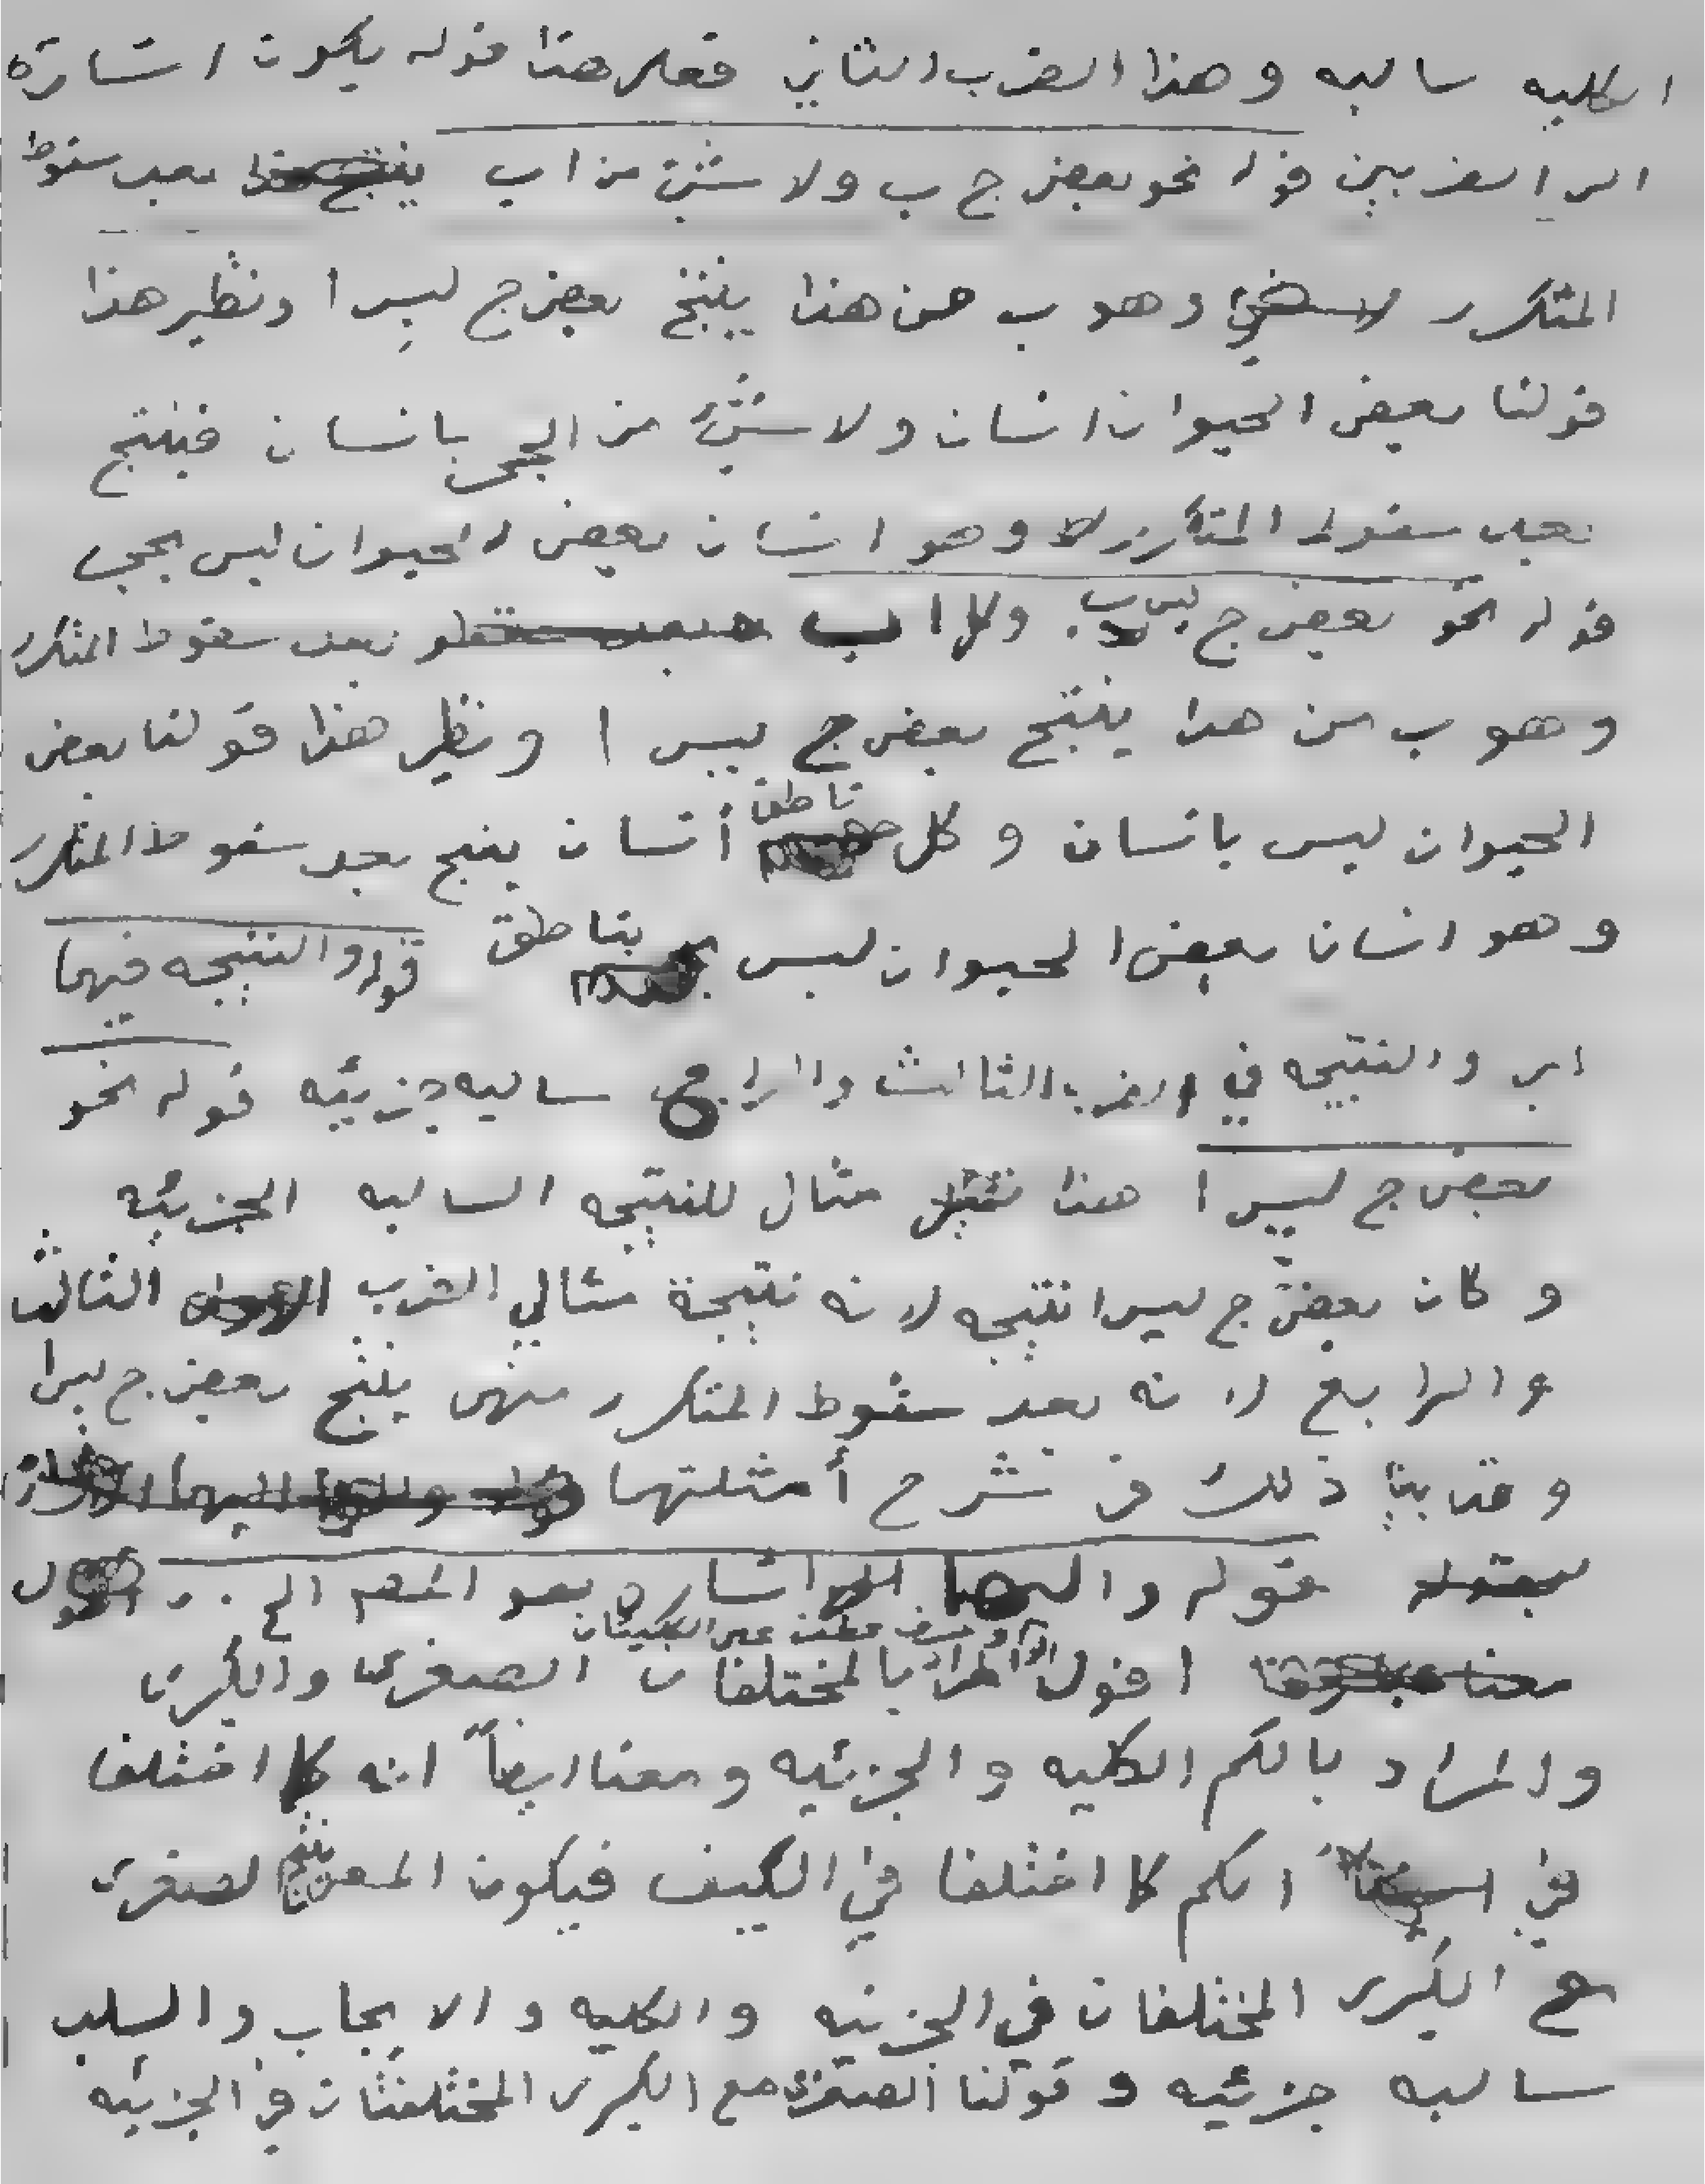 الكليه سالبه وهذا الضرب الثاني فعلى هذا قوله يكون اشارة
الى الضربين قوله نحو بعض ج ب ولا شئ من اب ينتج بعد سقوط
المتكرر وهو ب من هذا ينتج بعض ج ليس ا ونظير هذا
قولنا بعض الحيوان انسان ولا شئ من الحجر بانسان فينتج
بعد سقوط المتكرر وهو انسان بعض الحيوان ليس بحجر
قوله نحو بعض ج ليس ب وكل اب بعد سقوط المتكرر
وهو ب من هذا ينتج بعض ج ليس ا ونظير هذا قولنا بعض
الحيوان ليس بانسان وكل ناطق أنسان ينتج بعد سقوط المتكرر
وهو انسان بعض الحيوان ليس بناطق قوله والنتيجه فيهما
اي والنتيجه في الضرب الثالث والرابع سالبه جزئيه قوله نحو
بعض ج ليس ا هذا مثال للنتيجه السالبه الجزئيه
وكان بعض ج ليس ا نتيجه لانه نتيجة مثالي الضرب الثالث
والرابع لانه بعد سقوط المتكرر منهما ينتج بعض ج ليس ا
وقد بينا ذلك في شرح أمثلتهما
قوله واليها اشاره بعضهم الخ
اقول المراد بالمختلفان الصغرى والكبرى
والمراد بالكم الكليه والجزئيه ومعنا ايضاً انه كما اختلفا
في الكم كما اختلفا في الكيف فيكون المعنى ينتج لصغرى
مع الكبرى المختلفان في الجزئيه والكليه والايجاب والسلب
سالبه جزئيه وقولنا الصغرى مع الكبرى المختلفتان في الجزئيه